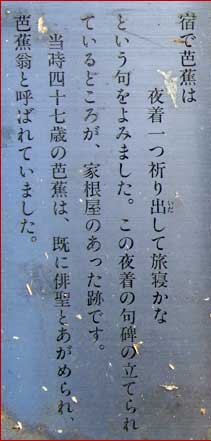 宿で芭蕉は
夜着一つ祈り出して旅寝かな
という句をよみました。この夜着の句碑の立てられ
ているどころが、家根屋のあった跡です。
当時四十七歳の芭蕉は、既に俳聖とあがめられ、
芭蕉翁と呼ばれていました。